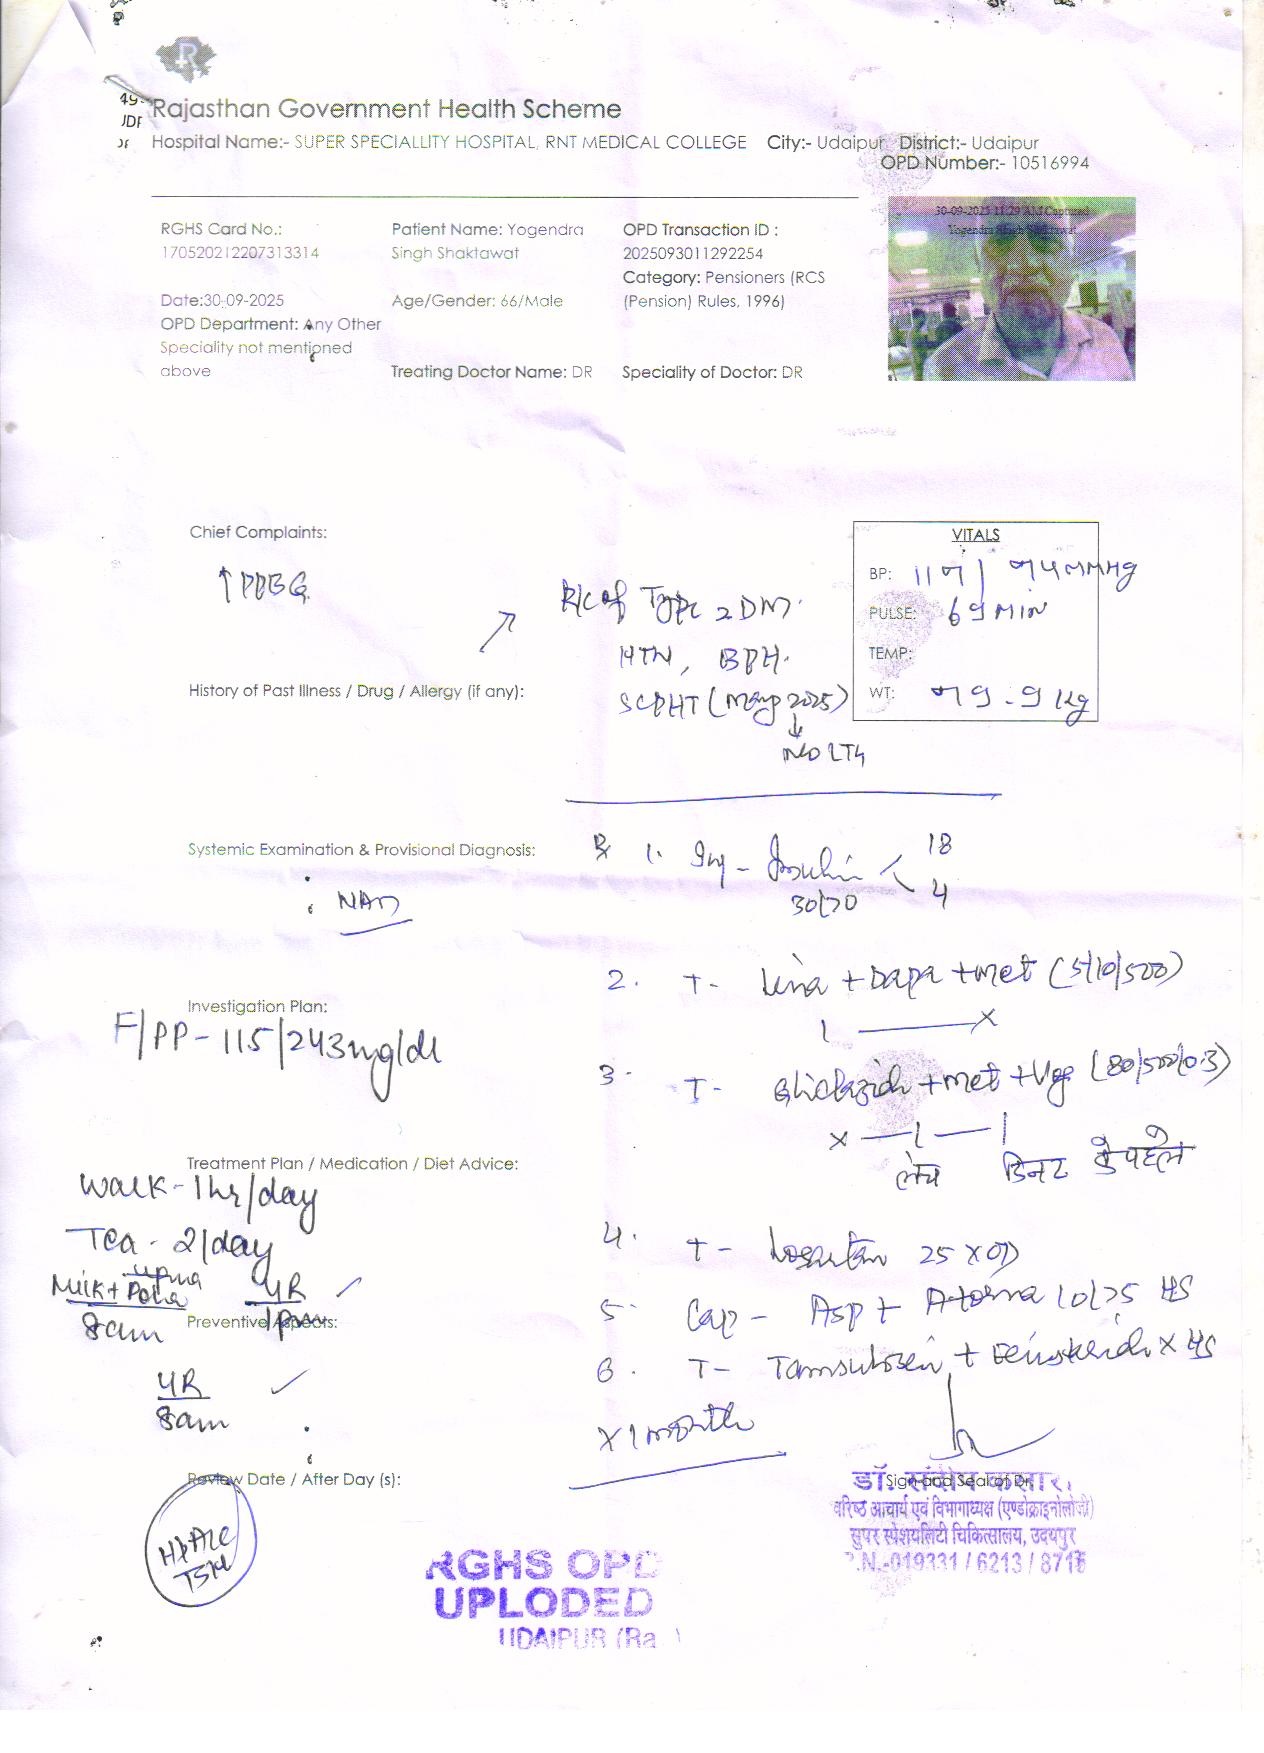 49
JDF
Rajasthan Government Health Scheme
Hospital Name:- SUPER SPECIALLITY HOSPITAL, RNT MEDICAL COLLEGE City:- Udaipur District:- Udaipur
OPD Number:- 10516994
RGHS Card No.:
170520212207313314
Patient Name: Yogendra
Singh Shaktawat
OPD Transaction ID :
2025093011292254
Category: Pensioners (RCS
(Pension) Rules, 1996)
Date:30-09-2025
Age/Gender: 66/Male
OPD Department: Any Other
Speciality not mentioned
above
Treating Doctor Name: DR
Speciality of Doctor: DR
30-09-2025 11:29 AM Captured
Yogendra Singh Shaktawat
Chief Complaints:
↑PPBG
K/c of Type 2 DM
HTN, BPH
(May 2025)
VITALS
BP: 117/74 MMHg
PULSE: 69 MIN
TEMP:
WT: 79.9 Kg
History of Past Illness / Drug / Allergy (if any):
Systemic Examination & Provisional Diagnosis:
NAD
Rx 1. Inj - Insulin < 18
30/70 4
2. T- Lina + Dapa + Met (5/10/500)
1 — X
Investigation Plan:
F/PP - 115/243 mg/dl
3. T- Gliclazide + Met + Vog (80/500/0.3)
X — 1 — 1
लंच डिनर के पहले
Treatment Plan / Medication / Diet Advice:
Walk - 1hr/day
Tea - 2/day
upma
Milk + Poha
8am
4R
1pm
Preventive Aspects:
4R
8am
4. T- Losartan 25 X OD
5. Cap - Asp + Atorva 10/75 HS
6. T- Tamsulosin + X HS
X 1 month
Review Date / After Day (s):
HbA1c
TSH
Sign and Seal of Dr.
वरिष्ठ आचार्य एवं विभागाध्यक्ष (एण्डोक्राइनोलोजी)
सुपर स्पेशयलिटी चिकित्सालय, उदयपुर
.N.-019331 / 6213 / 8713
RGHS OPD
UPLODED
UDAIPUR (Ra